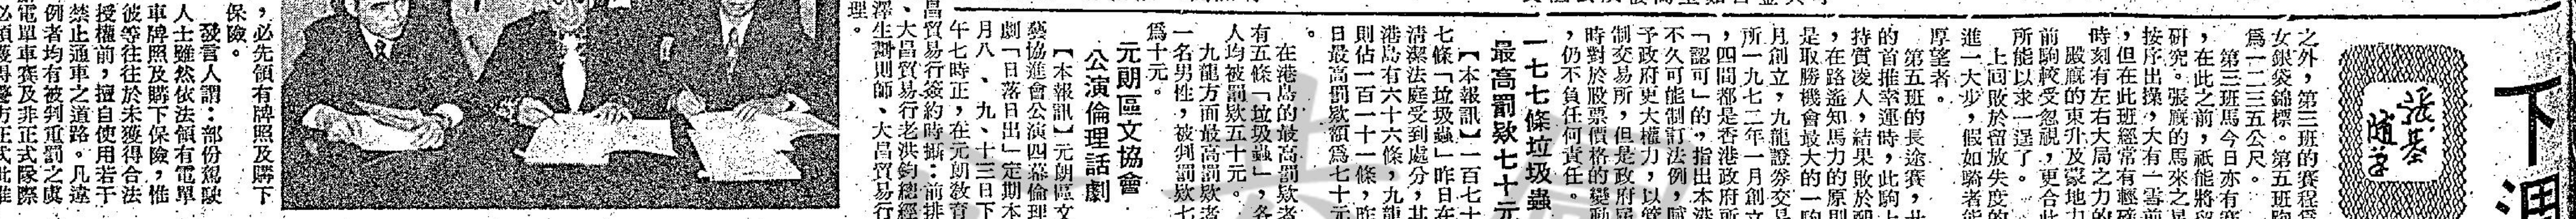 下
張基
隨筆
之外，第三班的賽程為
女銀袋錦標。第五班駒
為一二三五公尺。
第三班馬今日亦有賽
，在此之前，祇能將留
研究。張廐的馬來之星
按序出操，大有一雲前
，但在此班經常有輕磅
時刻有左右大局之力的
嚴廐的東升及蒙地力
前駒較受忽視，更合此
所能以求一逞了。
上回敗於留放失度的
進一大步，假如騎者能
厚望者。
第五班的長途賽，廿
的首推幸運時，此駒上
持質凌人，結果敗於
，在路遙知馬力的原則
是取勝機會最大的一駒
月創立，九龍證券交易
所一九七二年一月創立
，四間都是香港政府所
「認可」的，指出本港
不久可能制訂法例，賦
予政府更大權力，以管
制交易所，但是政府屆
時對於股票價格的變動
，仍不負任何責任。
一七七條垃圾蟲
最高罰欵七十元
【本報訊】一百七十
七條「垃圾蟲」昨日在
清潔法庭受到處分，其
港島有六十六條，九龍
則佔一百一十一條，昨
日最高罰欵額為七十元
。
在港島的最高罰欵者
有五條「垃圾蟲」，各
人均被罰欵五十元。
九龍方面最高罰欵者
一名男性，被判罰欵七
為十元。
元朗區文協會
公演倫理話劇
【本報訊】元朗區文
藝協進會公演四幕倫理
劇「日落日出」定期本
月八、九、十三日下
午七時正，在元朗教育
昌貿易行簽約時攝：前排
、大昌貿易行老洪鈞總經
澤生測則師、大昌貿易行
理。
，必先領有牌照及購下
保險。
發言人謂：部份駕駛
人士雖然依法領有電單
車牌照及購下保險，惟
彼等往往於未獲得合法
授權前，擅自使用若干
禁止通車之道路。凡違
例者均有被判重罰之虞
電單車賽及非正式隊際